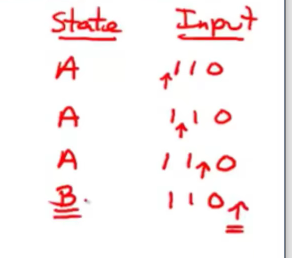 State Input
A ↑110
A 1↑10
A 11↑0
B. 110↑